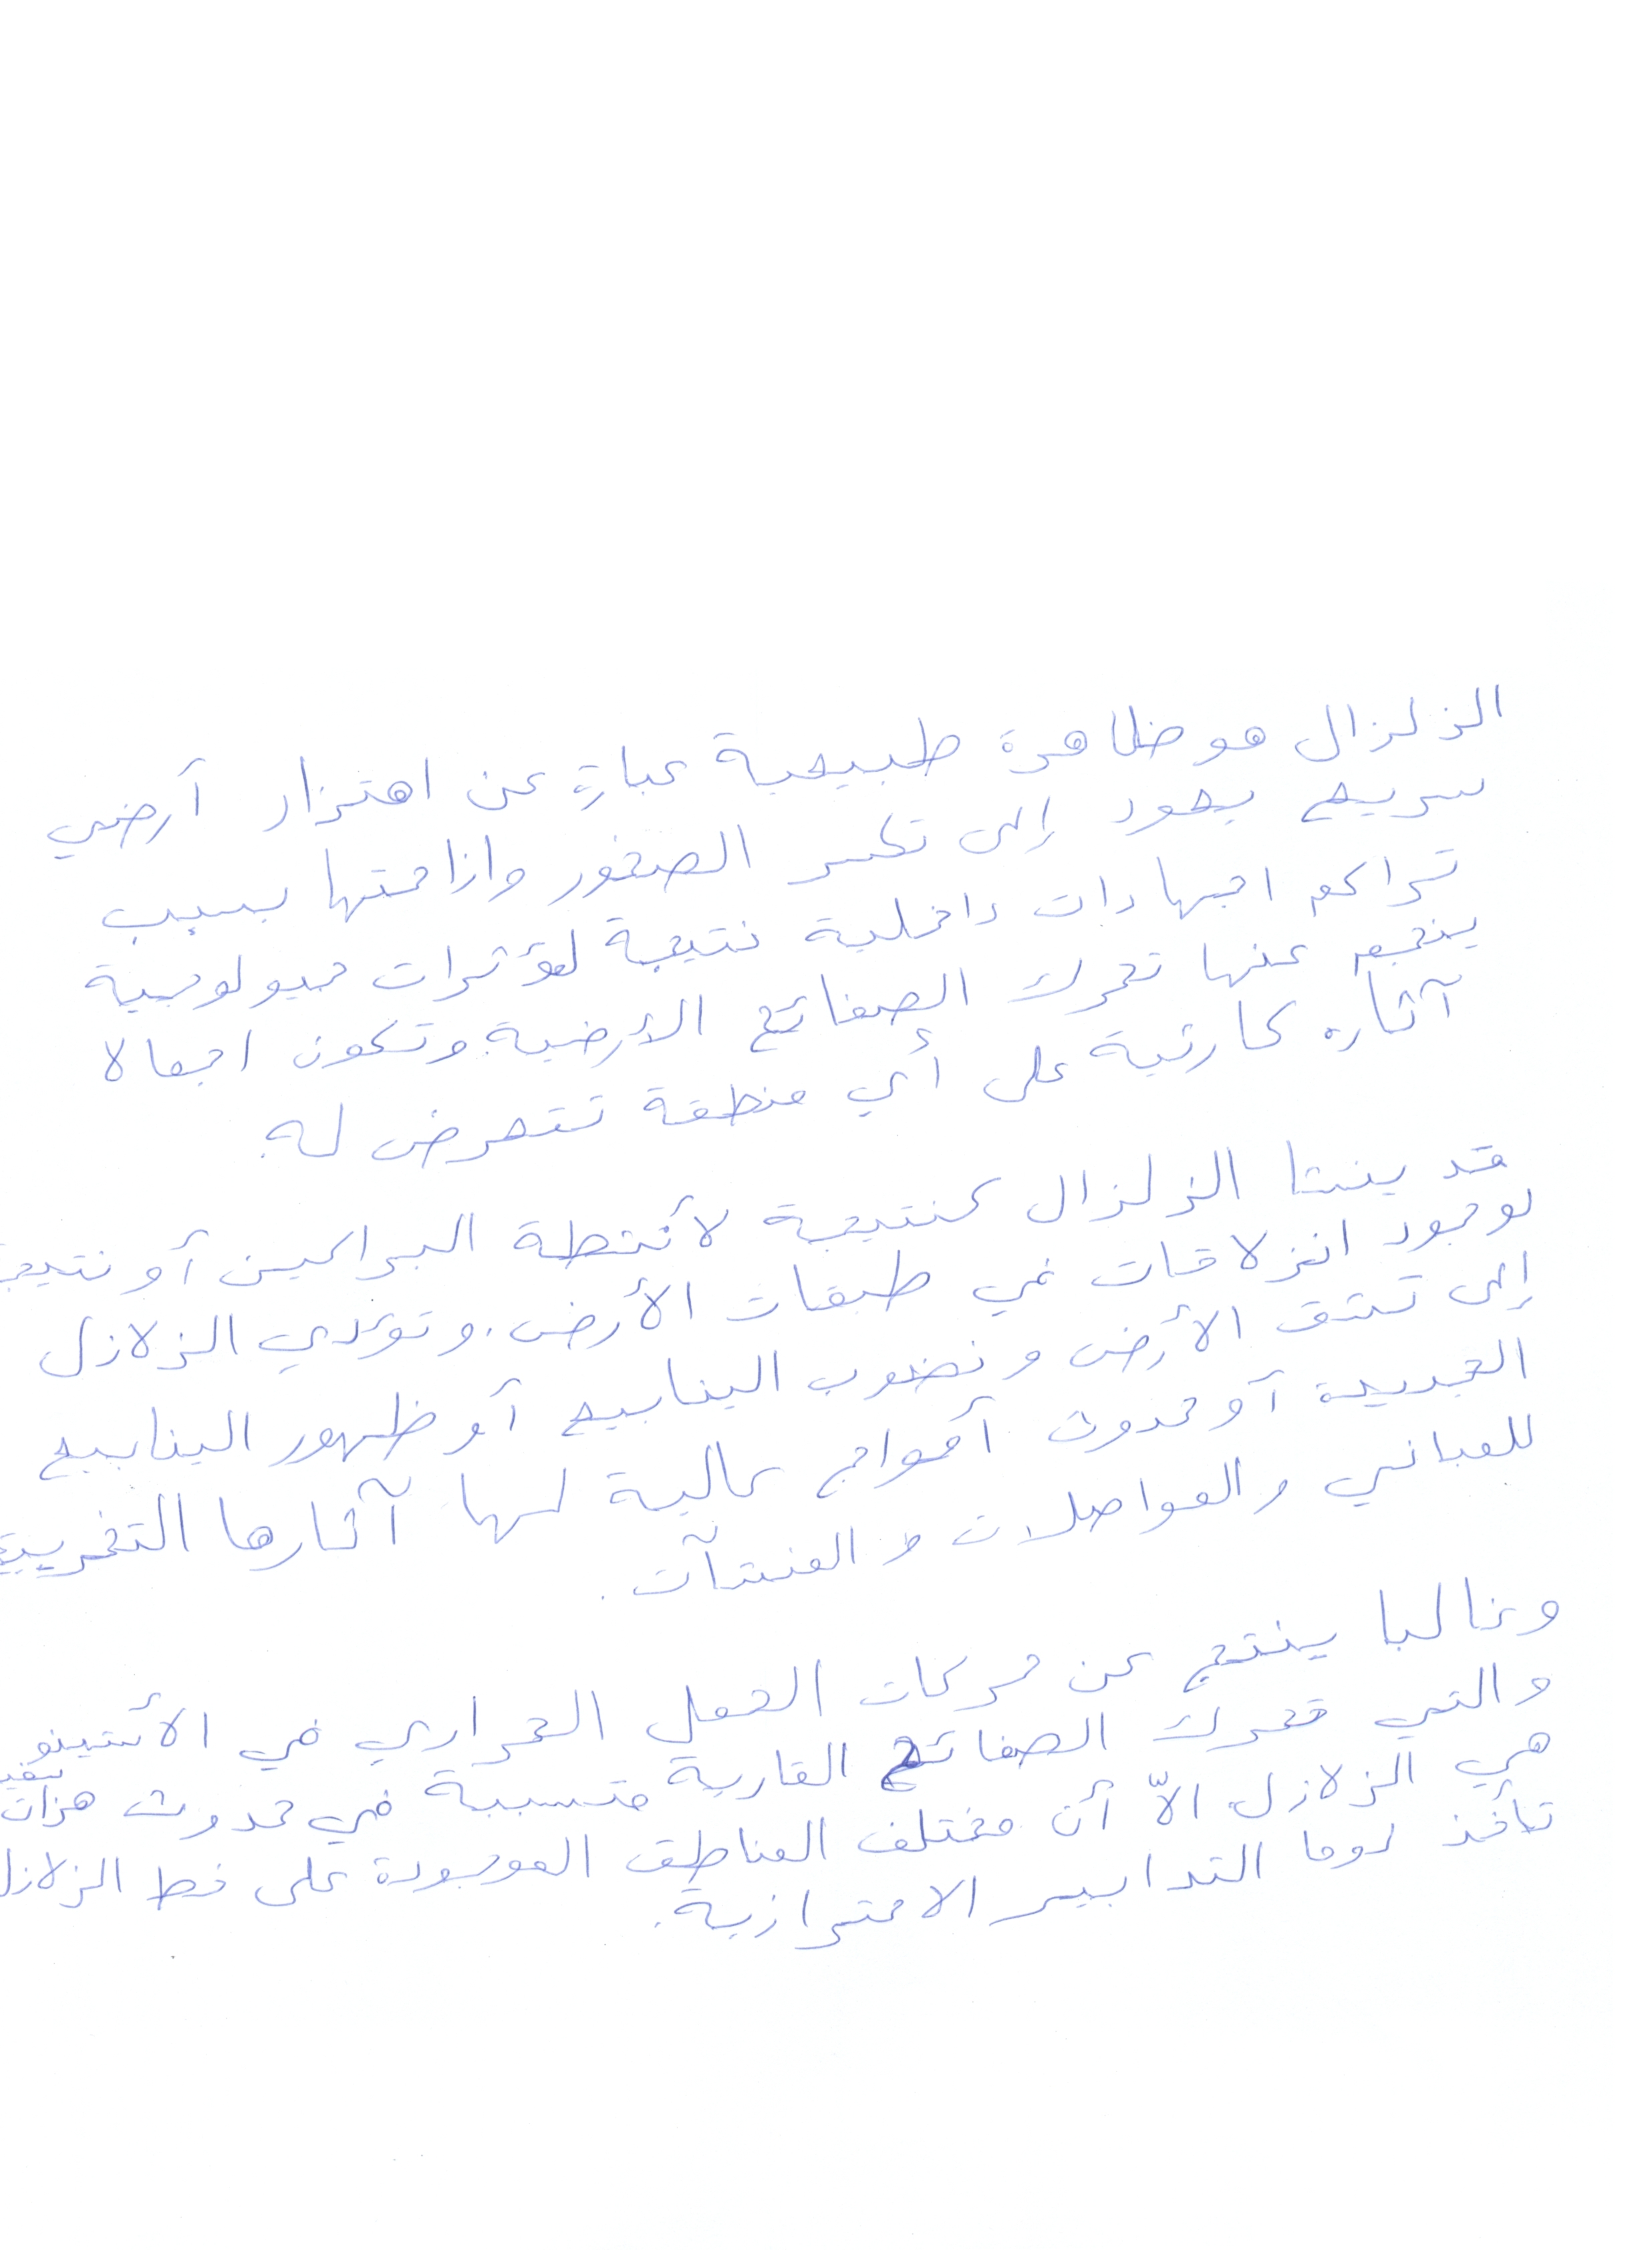 الزلزال هو ظاهرة طبيعية عبارة عن اهتزاز أرضي
سريع يعود إلى تكسر الصخور وازاحتها بسبب
تراكم اجهادات داخلية نتيجة لمؤثرات جيولوجية
ينجم عنها تحرك الصفائح الأرضية. وتكون اجمالا
آثاره كارثية على أي منطقة تتعرض له.
قد ينشا الزلزال كنتيجة لأنشطة البراكين أو نتيجة
لوجود انزلاقات في طبقات الأرض. وتؤدي الزلازل
إلى تشقق الأرض ونضوب الينابيع أو ظهور الينابيع
الجديدة أو حدوث أمواج عالية لها آثارها التخريبية
للمباني والمواصلات والمنشآت.
وغالبا ينتج عن حركات الحمل الحراري في
والتي تحرك الصفائح القارية متسببة في حدوث هزات
هي الزلازل. الاّ أن مختلف المناطق الموجودة على خط الزلازل
تأخذ دوما التدابير الاحترازية.